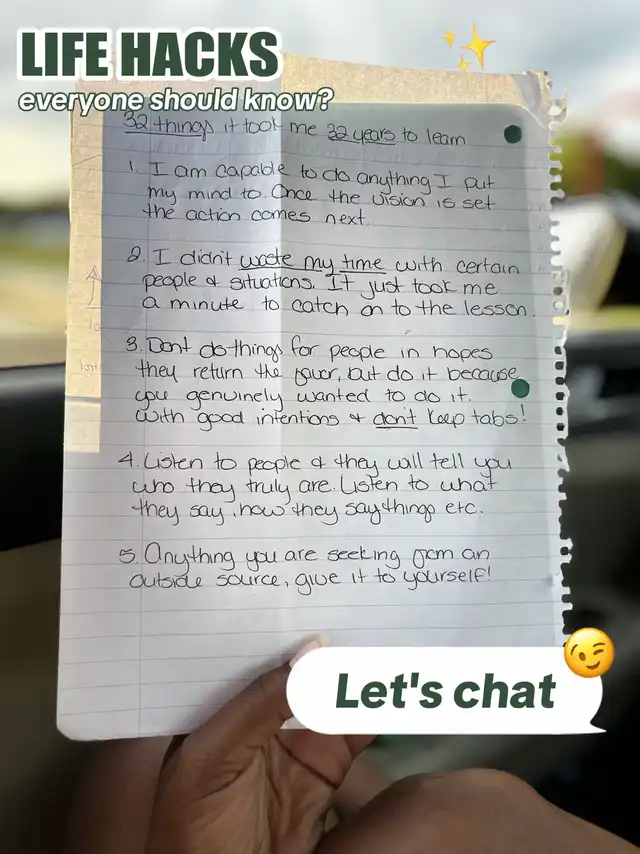 LIFE HACKS
everyone should know?
32 things it took me 32 years to learn
1. I am capable to do anything I put
my mind to. Once the vision is set
the action comes next.
2. I didn't waste my time with certain
people & situations. It just took me
a minute to catch on to the lesson.
3. Dont do things for people in hopes
they return the favor, but do it because
you genuinely wanted to do it.
With good intentions & don't keep tabs!
4. Listen to people & they will tell you
who they truly are. Listen to what
they say, how they say things etc.
5. Anything you are seeking from an
outside source, give it to yourself!
Let's chat